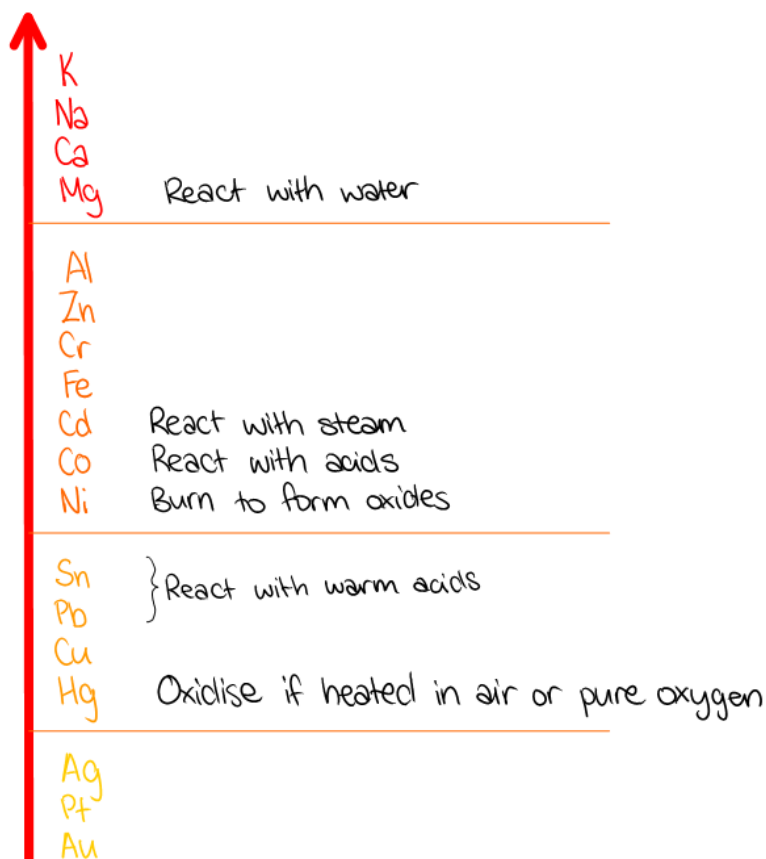 K
Na
Ca
Mg React with water
Al
Zn
Cr
Fe
Cd React with steam
Co React with acids
Ni Burn to form oxides
Sn
}React with warm acids
Pb
Cu
Hg Oxidise if heated in air or pure oxygen
Ag
Pt
Au